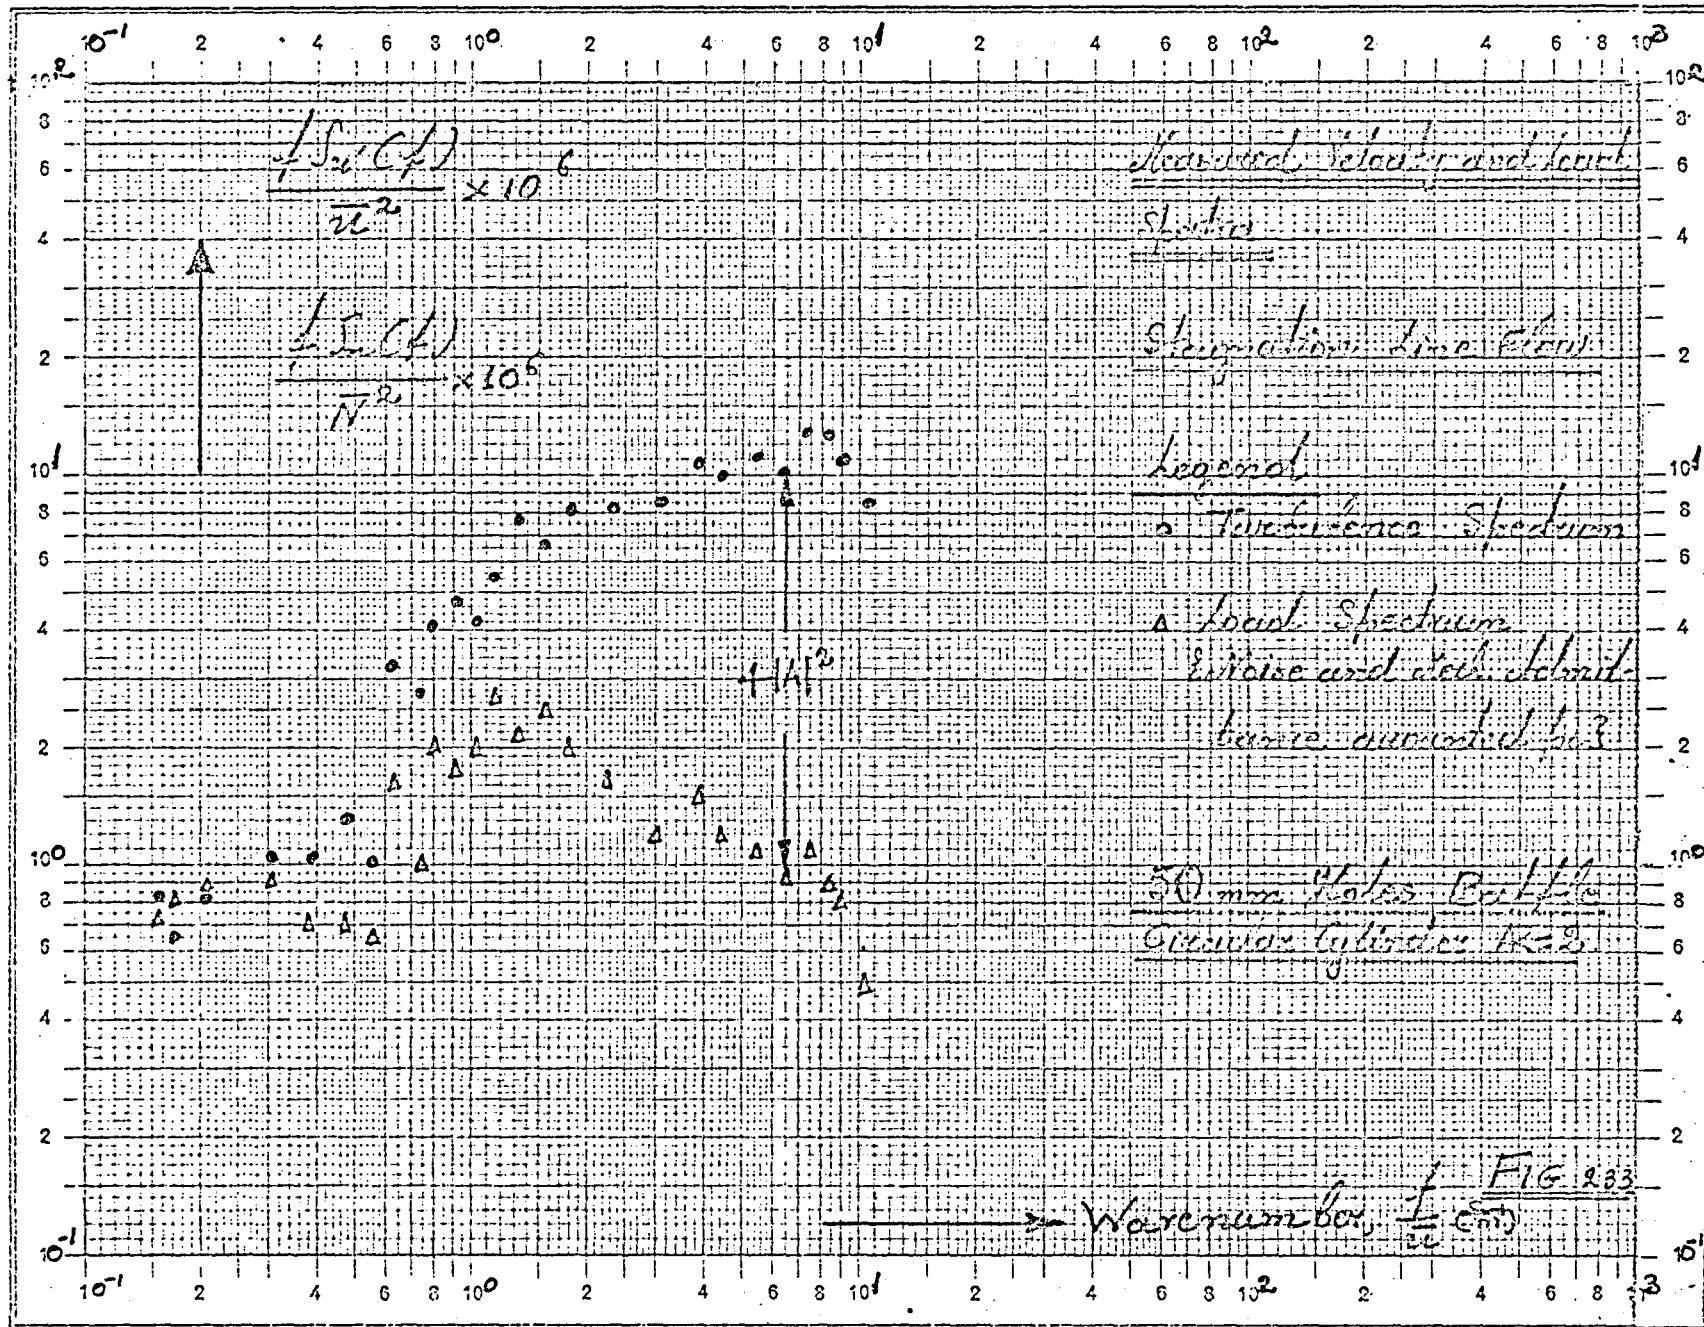 10⁻¹ 2 4 6 8 10⁰ 2 4 6 8 10¹ 6 8 10² 2 4 6 8 10³
10² 8 6 4 2 10¹ 8 6 4 2 10⁰ 8 6 4 2 10⁻¹
f Su(f) / ū² × 10⁶
f (f) / N̄² × 10⁶
4|A|²
Measured Velocity and Load
Spectra
Stagnation Line Flow
Legend
o Turbulence Spectrum
Δ Load Spectrum
Noise and Admit-
tance accounted for
50 mm Holes Baffle
Circular Cylinder AR=2
FIG 233
Wavenumber, f/ū (m⁻¹)
10² 8 6 4 2 10¹ 8 6 4 2 10⁰ 8 6 4 2 10⁻¹
10⁻¹ 2 4 6 8 10⁰ 2 4 6 8 10¹ 2 4 6 8 10² 2 4 6 8